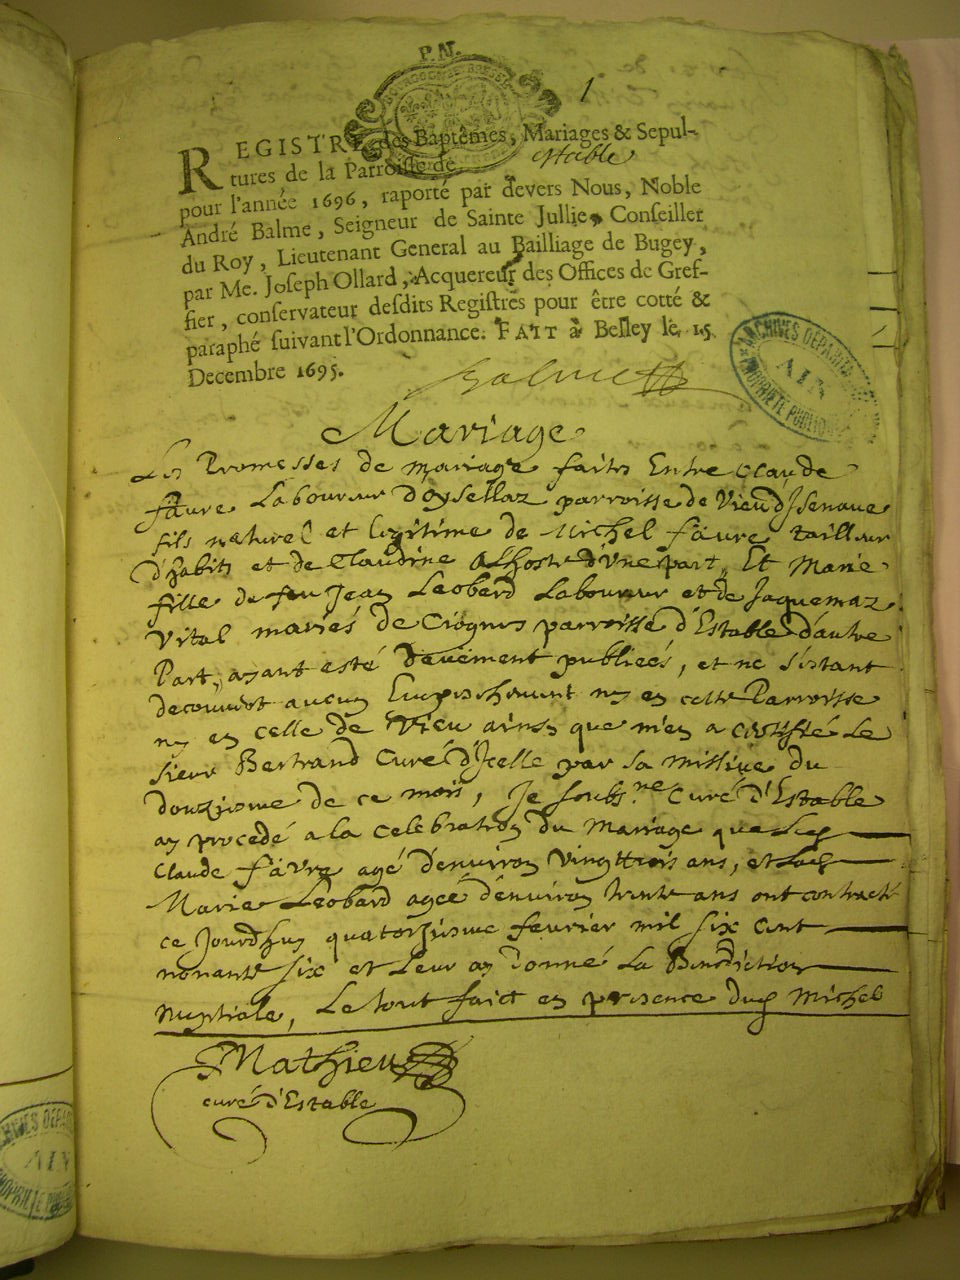 P.N.
1
REGISTRE des Baptêmes, Mariages & Sepul-
tures de la Parroisse de estable
pour l'année 1696, raporté par devers Nous, Noble
André Balme, Seigneur de Sainte Jullie, Conseiller
du Roy, Lieutenant General au Bailliage de Bugey,
par Me. Joseph Ollard, Acquereur des Offices de Gref-
fier, conservateur desdits Registres pour être cotté &
paraphé suivant l'Ordonnance. FAIT à Belley le 15
Decembre 1695.
Balme
ARCHIVES DEPART
AIN
PROPRIETE PUBLIQUE
Mariage
Les Promesses de mariage faites Entre Claude
favre Laboureur d'oysellaz parroisse de Vieu d'Isenave
fils naturel et legitime de Michel favre tailleur
d'habits et de Claudine Alhoste d'vne part, Et Marie
fille de feu Jean Leobard Laboureur et de Jaquemaz
Vital mariés de parroisse d'Estable d'autre
Part, ayant esté deuëment publieés, et ne s'estant
decouvert aucun Empeschement ny en cette Parroisse
ny en celle de Vieu ainsy que m'en a certifié Le
sieur Bertrand Curé d'Icelle par sa missive du
douziesme de ce mois, Je soubs.ne Curé d'Estable
ay procedé a la celebration du Mariage que led
Claude favre agé d'environ vingt trois ans, et lad
Marie Leobard ageé d'environ trente ans ont contracté
ce Jourdhuy quatorziesme fevrier mil six cent
nonante six et Leur ay donné La Benediction
Nuptiale, Le tout faict en presence dud Michel
Mathieu
curé d'Estable
ARCHIVES DEPA
AIN
PROPRIETE PUB